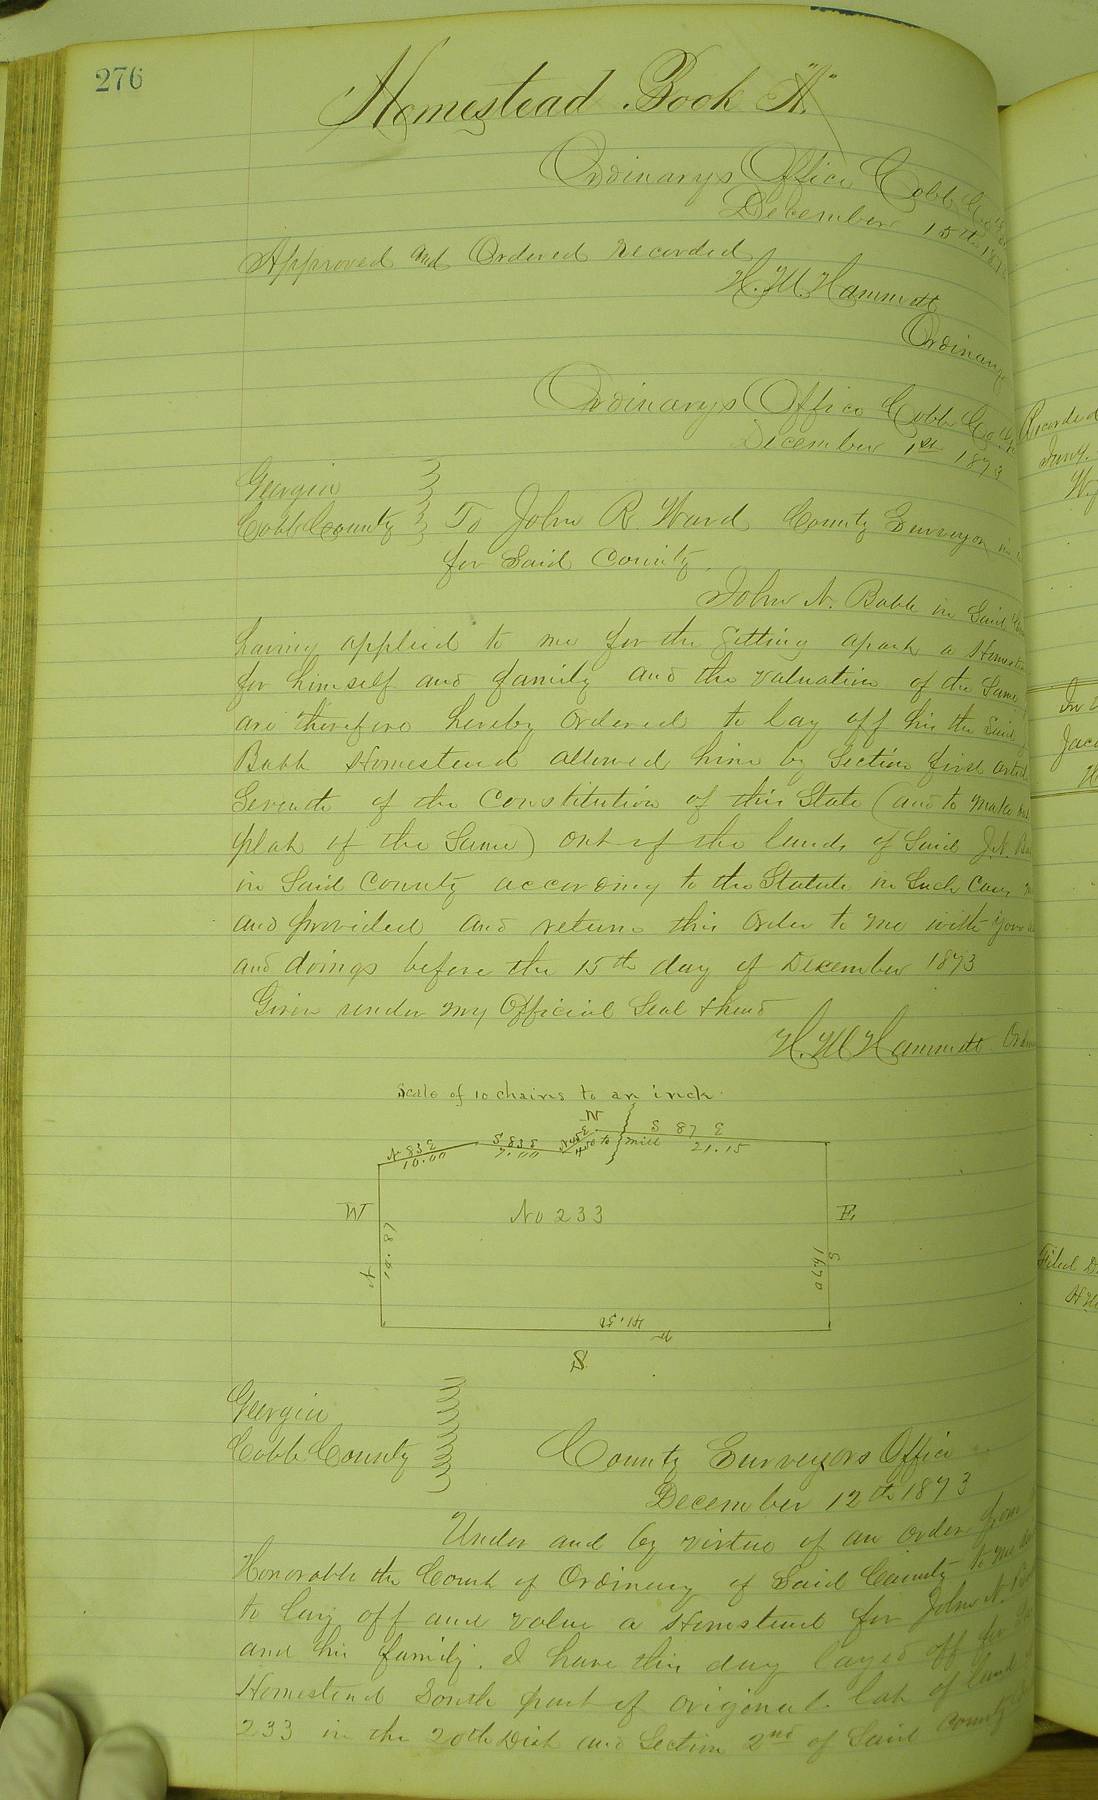 276
Homestead Book "A"
Ordinarys Office Cobb
December 15th 187
Approved and Ordered recorded
H. M. Hammett
Ordinary
Ordinarys Office Cobb Co.
December 1st 1873
Georgia
Cobb County To John R. Ward County Surveyor in
for Said County.
John N. Babb in Said
having applied to me for the Setting apart a Homestead
for himself and family and the valuation of the Same
are therefore hereby Ordered to lay off his the Said
Babb Homestead allowed him by Section first
Seventh of the Constitution of this State (and to make
plat of the Same) out of the lands of Said J.N.
in Said County according to the Statute in Such Cases
and provided and return this Order to me with your
and doings before the 15th day of December 1873
Given under my Official Seal & hand
H. M. Hammett
Scale of 10 chains to an inch
N
N 83 E
10.00
S 83 E
7.00
N 45 E
4.50 to
mill
S 87 E
21.15
W
No 233
E
14.87
N
S
41.50
W
S
Georgia
Cobb County
County Surveyors Office
December 12th 1873
Under and by virtue of an order from
Honorable the Court of Ordinary of Said County to me
to lay off and value a Homestead for John N.
and his family. I have this day layed off for
Homestead South part of original lot of land
233 in the 20th Dist and Section 2nd of Said County
Recorded
Jany.
In
Jac
Filed